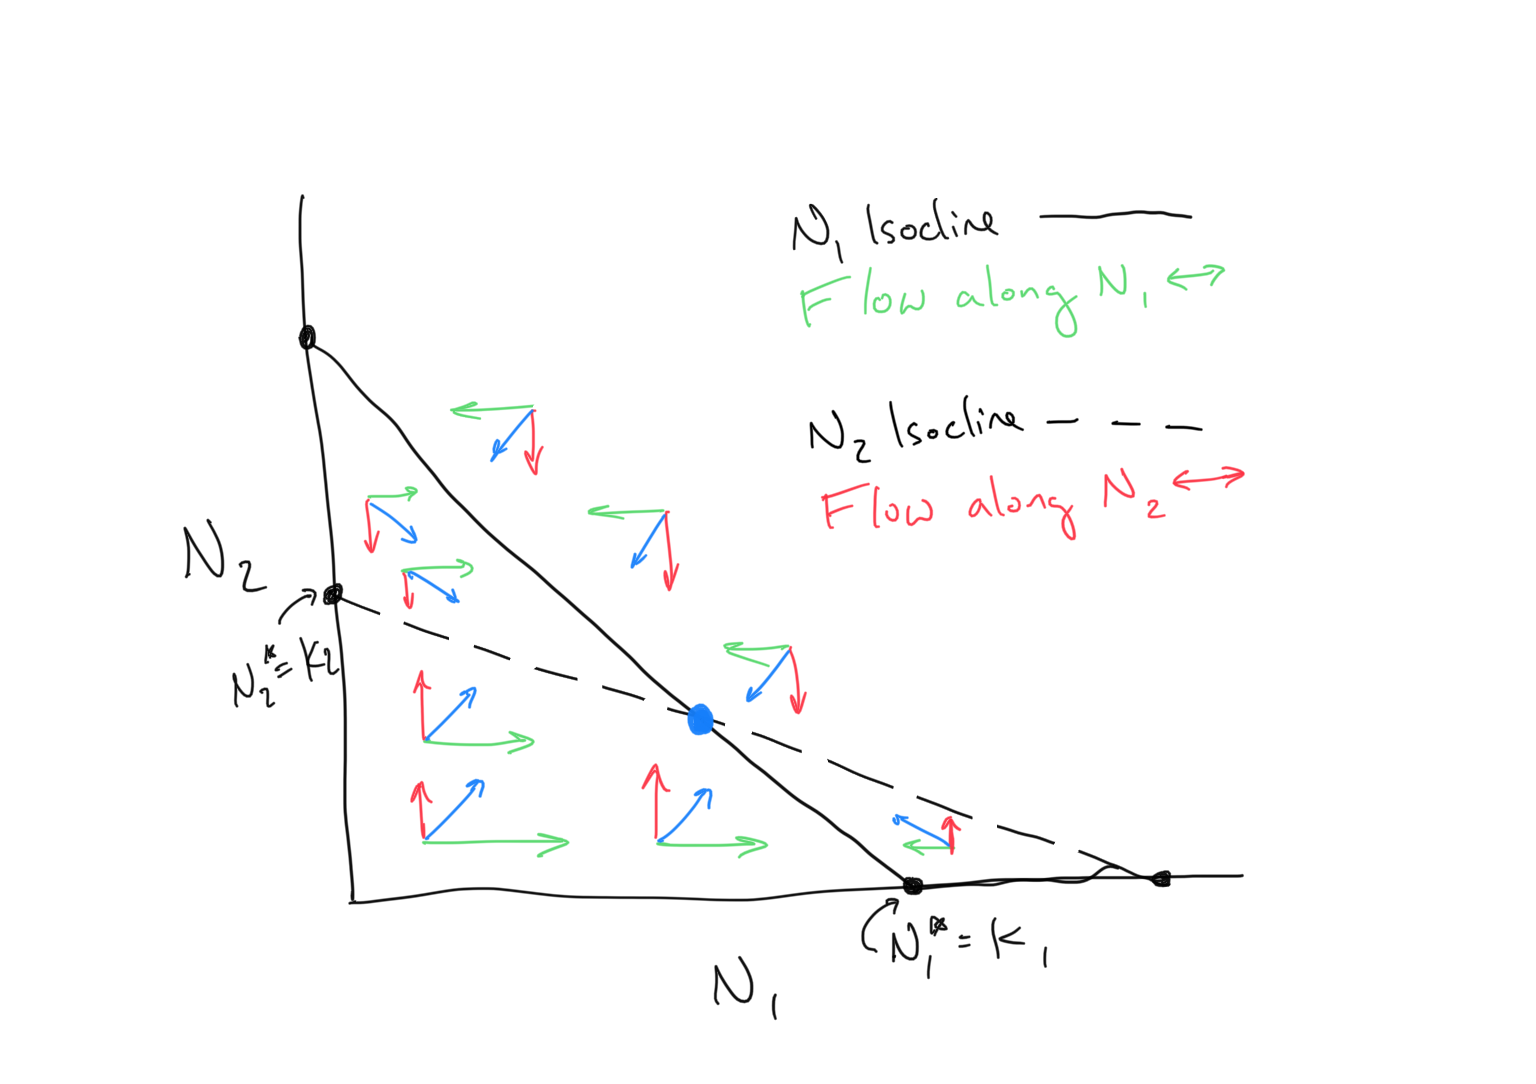 N₁ Isocline
Flow along N₁
N₂ Isocline
Flow along N₂
N₂
N₂* = K₂
N₁* = K₁
N₁